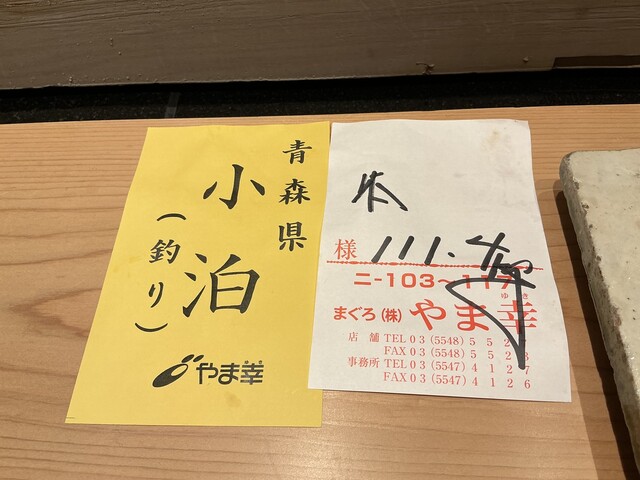 青森県
小泊
(釣り)
やま幸
様 111.4
ニ-103〜117
まぐろ(株) やま幸
ゆき
店舗 TEL 03(5548) 5 5 2
FAX 03(5548) 5 5 2
事務所 TEL 03(5547) 4 1 2 7
FAX 03(5547) 4 1 2 6